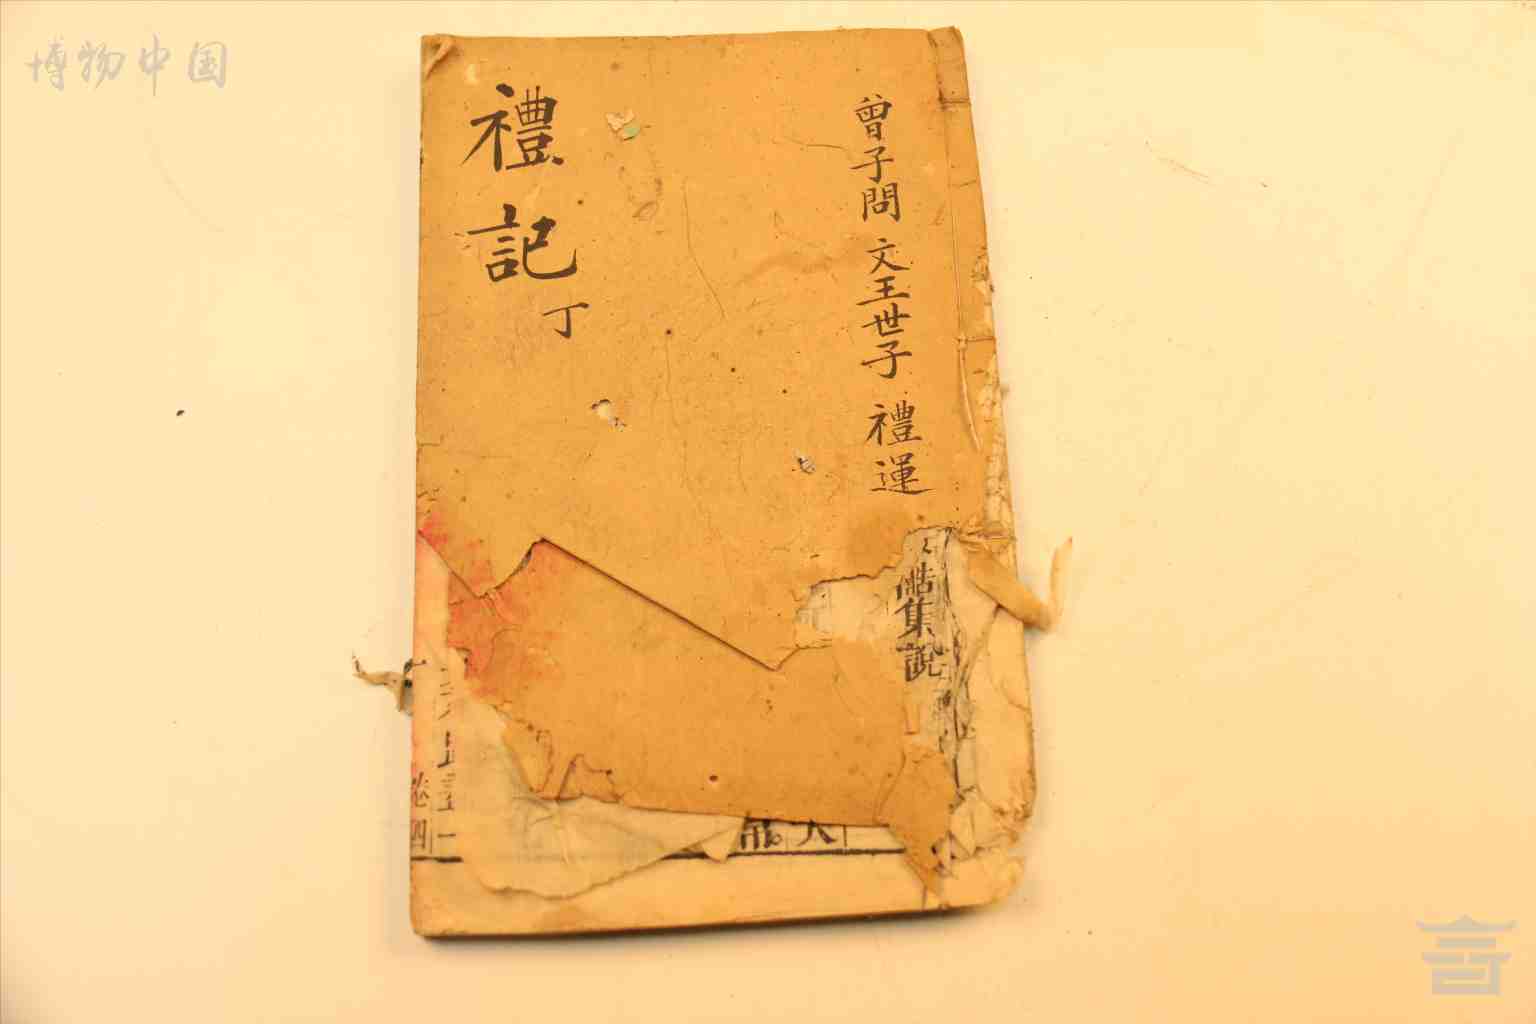 博物中国
曾子問 文王世子 禮運
禮記
丁
集說
卷四